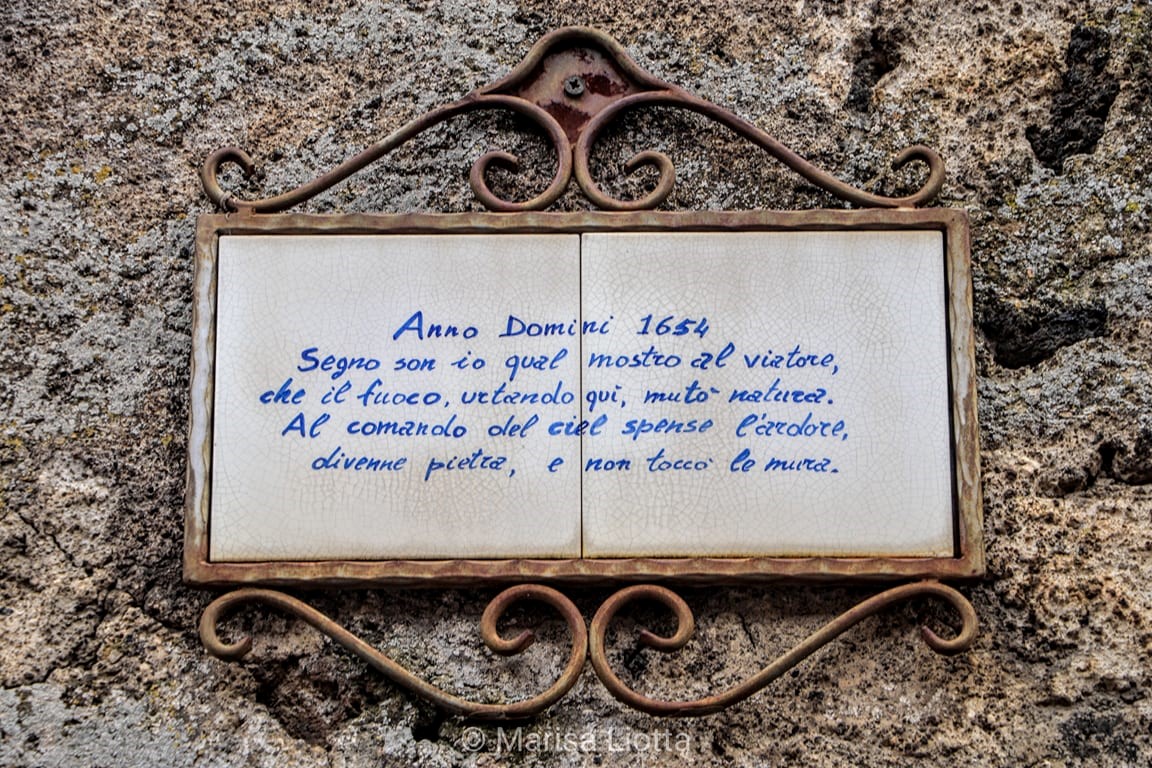 Anno Domini 1654
Segno son io qual mostro al viatore,
che il fuoco, urtando qui, mutò natura.
Al comando del ciel spense l'ardore,
divenne pietra, e non toccò le mura.
© Marisa Liotta